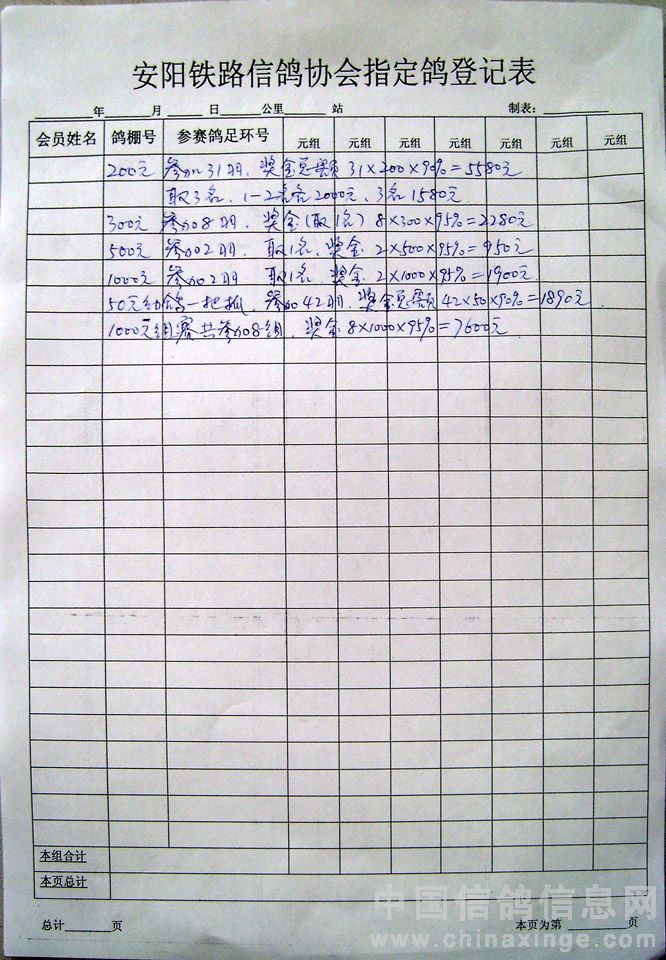 安阳铁路信鸽协会指定鸽登记表
年 月 日 公里 站 制表：
会员姓名 鸽棚号 参赛鸽足环号 元组 元组 元组 元组 元组 元组 元组
200元 参加31羽，奖金总额 31×200×90%=5580元
取3名，1-2名各2000元，3名1580元
300元 参加8羽，奖金(取1名) 8×300×95%=2280元
500元 参加2羽，取1名，奖金 2×500×95%=950元
1000元 参加2羽 取1名 奖金 2×1000×95%=1900元
50元幼鸽一把抓，参加42羽，奖金总额 42×50×90%=1890元
1000元组赛共参加8组，奖金 8×1000×95%=7600元
本组合计
本页总计
总计 页 本页为第 页
中国信鸽信息网
www.chinaxinge.com